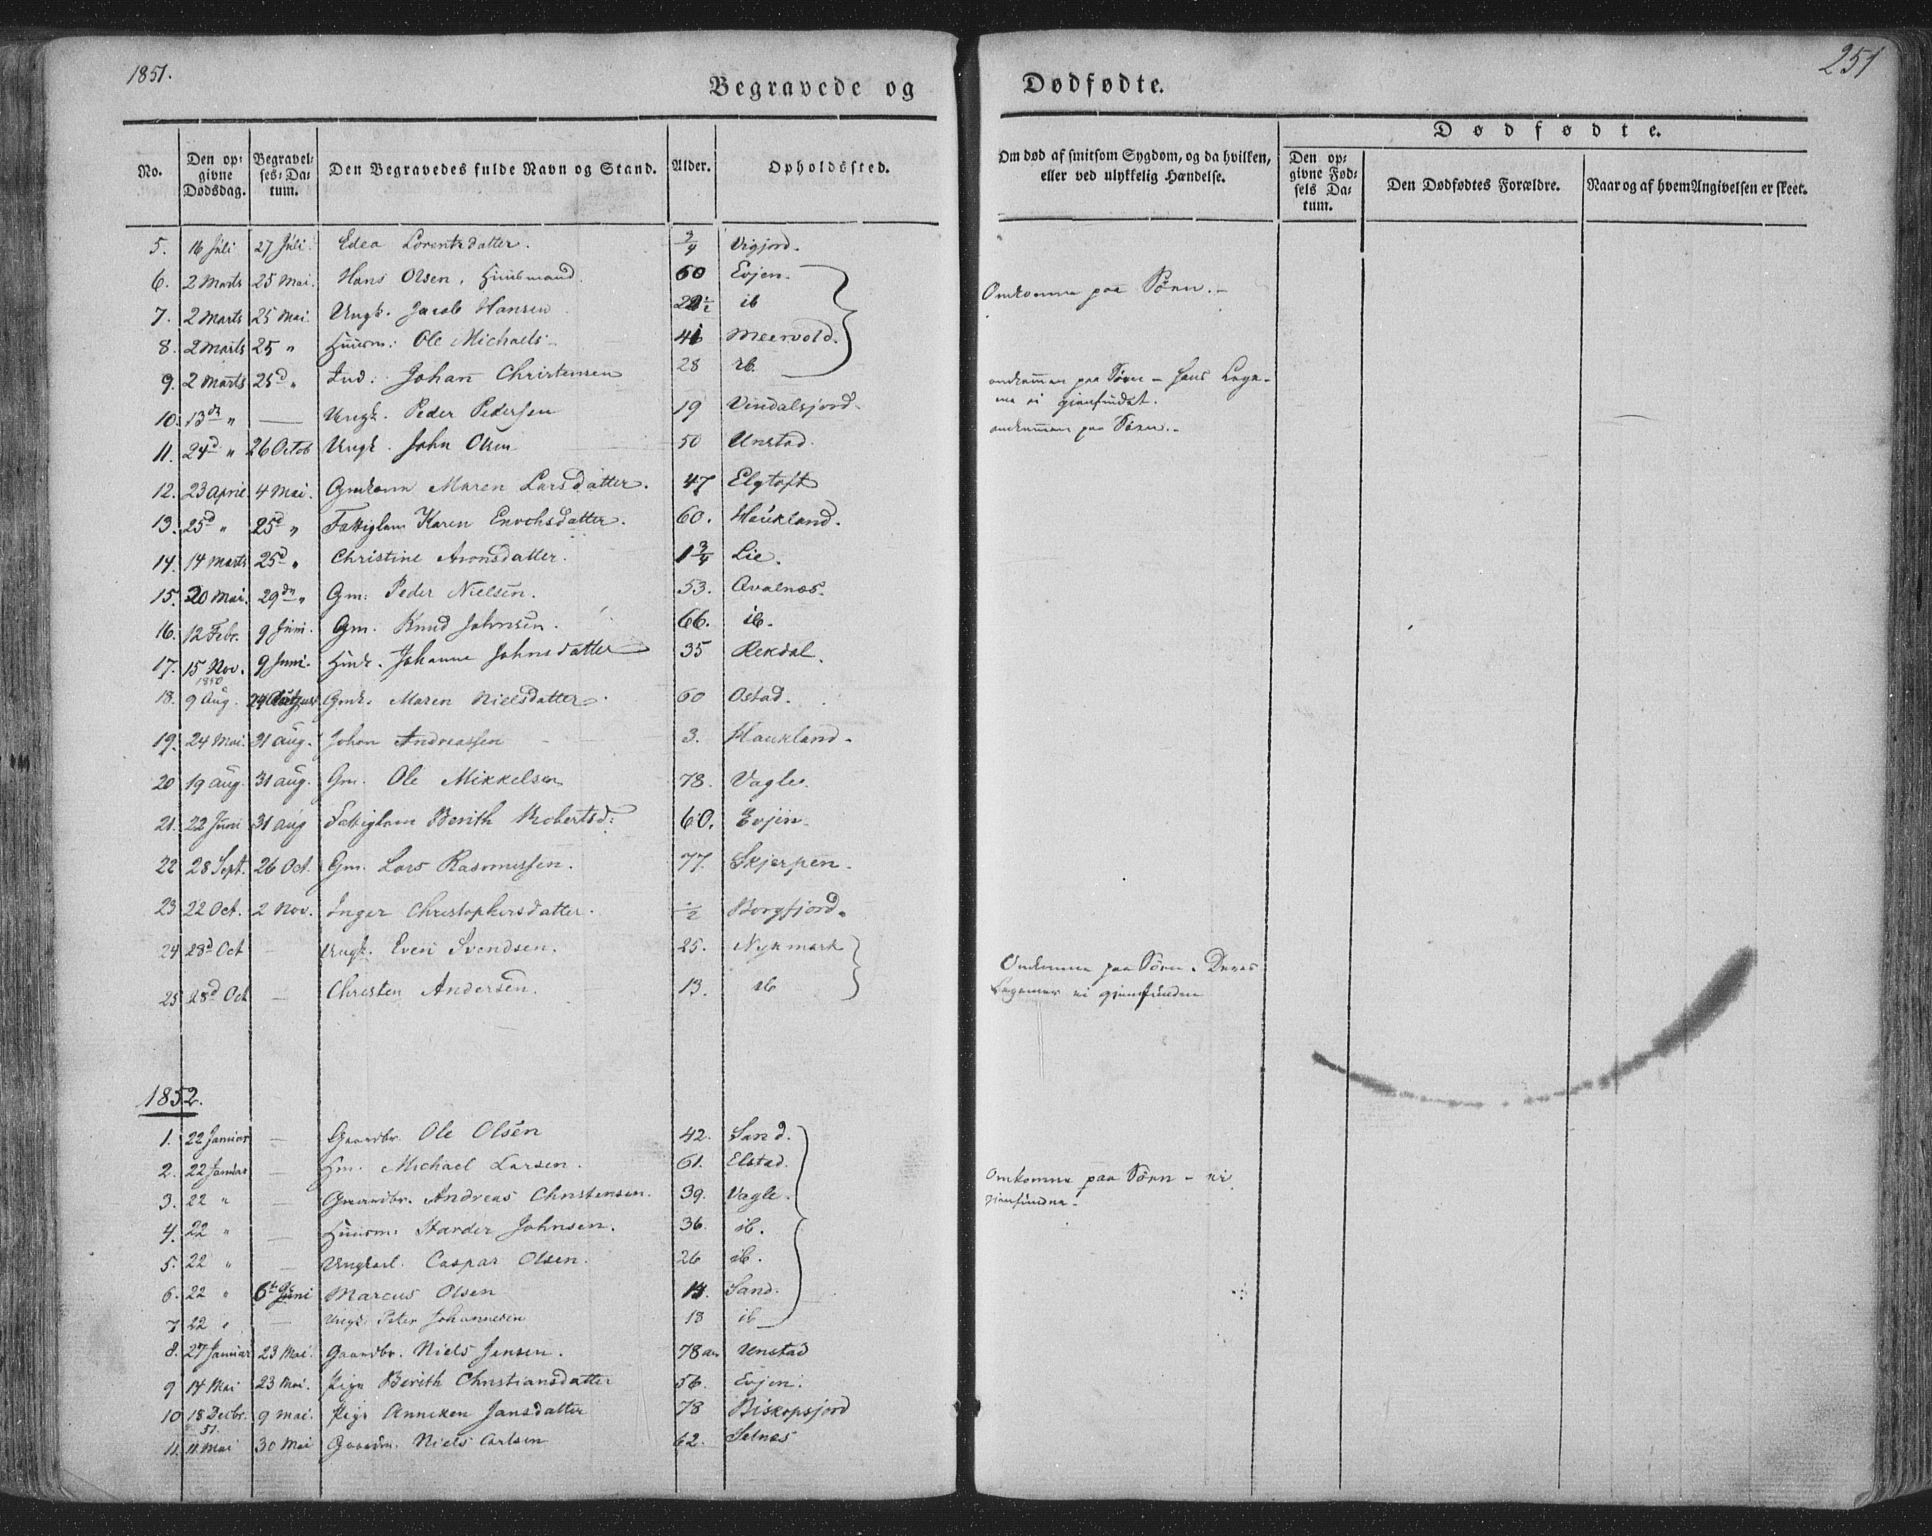 1851.
Begravede og Dødfødte.
251
No.
Den opgivne Dødsdag.
Begravelses-Datum.
Den Begravedes fulde Navn og Stand.
Alder.
Opholdssted.
Om død af smitsom Sygdom, og da hvilken, eller ved ulykkelig Hændelse.
Dødfødte.
Den opgivne Fødsels Datum.
Den Dødfødtes Forældre.
Naar og af hvem Angivelsen er skeet.
5. 16 Juli 27 Juli. Edea Lorentsdatter. 3/4 Vigjord.
6. 2 Marts 25 Mai. Hans Olsen, Huusmand 60 Evjen.
7. 2 Marts 25 Mai. Ungk. Jacob Hansen ib
Omkomne paa Søen.
8. 2 Marts 25 " Huusm: Ole Michaels: 41 Meervold.
9. 2 Marts 25d " Ind: Johan Christensen 28 ib.
10. 13de " — Ungk. Peder Pedersen 19 Vindalsjord.
omkommen paa Søen – hans Lege-
me ei gjenfundet.
11. 24d " 26 Octob Ungk. John Olsen 50 Unstad.
omkommen paa Søen.
12. 23 April 4 Mai. Gmkone Maren Larsdatter. 47 Elgtoft
13. 25d " 25d " Fattiglem Karen Enochsdatter. 60. Haukland.
14. 14 Marts 25d " Christine Aronsdatter. 1 3/4 Lie.
15. 20 Mai. 29de " Gm: Peder Nielsen. 53. Qvalnæs.
16. 12 Febr. 9 Juni. Gm. Knud Johnsen. 66. ib.
17. 15 Nov. 1850 9 Juni. Huusk. Johanna Johnsdatter 35 Rekdal.
18. 9 Aug. 24 August Gmk. Maren Nielsdatter. 60 Ostad.
19. 24 Mai. 31 Aug. Johan Andreassen 3. Haukland.
20 19 Aug. 31 Aug. Gm. Ole Mikkelsen 78. Vagle.
21. 22 Juni 31 Aug Fattiglem Berith Robertsd: 60. Evjen.
22 28 Sept. 26 Oct. Gm. Lars Rasmussen. 77. Skjerpen.
23 22 Oct. 2 Nov. Inger Christophersdatter. 1/2 Borgfjord.
24 28d Oct — Ungk. Even Svendsen. 25. Nykmark
25 28d Oct — Christen Andersen. 13. ib
Omkomne paa Søen. Deres
Legemer ei gjenfundne
1852.
1. 22 Januar — Gaardbr. Ole Olsen 42. Sand.
2. 22 Januar — Hm. Michael Larsen. 61. Elstad.
3. 22 " — Gaardbr. Andreas Christensen. 39. Vagle.
Omkomne paa Søen – ei
gjenfundne.
4. 22 " — Huusm: Harder Johnsen. 36. ib.
5. 22 " — Ungkarl. Caspar Olsen. 26 ib.
6. 22 " 6te Juni Marcus Olsen Sand.
7 22 " — Ungk. Peter Johannesen 18 ib
8. 27 Januar 23 Mai. Gaardbr. Niels Jensen. 78 aar Unstad
9 14 Mai 23 Mai. Pige Berith Christiansdatter 56. Evjen.
10 18 Decbr. 51. 9 Mai. Pige Anneken Jansdatter 78 Biskopsjord
11. 11. Mai 30 Mai Gaardm. Niels Carlsen 62. Selnæs